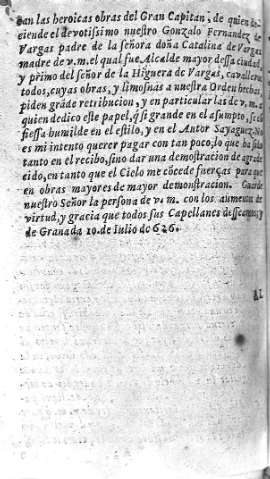 dan las heroicas obras del Gran Capitan, de quien de-
ciende el devotissimo nuestro Gonzalo Fernandez de
Vargas padre de la señora doña Catalina de Vargas
madre de v.m. el qual fue Alcalde mayor dessa ciudad,
y primo del señor de la Higuera de Vargas, cavalleros
todos, cuyas obras, y limosnas a nuestra Orden hechas,
piden gráde retribucion, y en particular las de v.m. a
quien dedico este papel, q̃ si grande en el asumpto, se co
fiessa humilde en el estilo, y en el Autor Sayaguez. No
es mi intento querer pagar con tan poco, lo que ha sido
tanto en el recibo, sino dar una demostracion de agrade
cido, en tanto que el Cielo me cócede fuerças para que
en obras mayores de mayor demonstracion. Guarde
nuestro Señor la persona de v. m. con los aumentos de
virtud, y gracia que todos sus Capellanes desseamos, y
de Granada 10. de Iulio de 626.